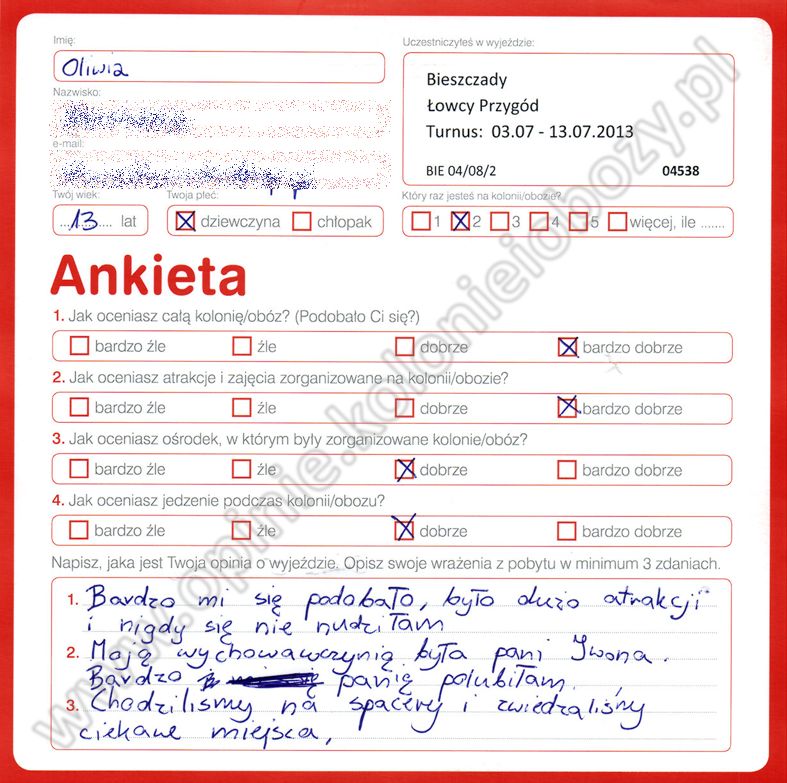 Imię:
Oliwia
Nazwisko:
e-mail:
Twój wiek:
13 lat
Twoja płeć:
dziewczyna chłopak
Uczestniczyłeś w wyjeździe:
Bieszczady
Łowcy Przygód
Turnus: 03.07 - 13.07.2013
BIE 04/08/2 04538
Który raz jesteś na kolonii/obozie?
1 2 3 4 5 więcej, ile .......
Ankieta
1. Jak oceniasz całą kolonię/obóz? (Podobało Ci się?)
bardzo źle źle dobrze bardzo dobrze
2. Jak oceniasz atrakcje i zajęcia zorganizowane na kolonii/obozie?
bardzo źle źle dobrze bardzo dobrze
3. Jak oceniasz ośrodek, w którym były zorganizowane kolonie/obóz?
bardzo źle źle dobrze bardzo dobrze
4. Jak oceniasz jedzenie podczas kolonii/obozu?
bardzo źle źle dobrze bardzo dobrze
Napisz, jaka jest Twoja opinia o wyjeździe. Opisz swoje wrażenia z pobytu w minimum 3 zdaniach.
1. Bardzo mi się podobało, było dużo atrakcji
i nigdy się nie nudziłam
2. Moją wychowawczynią była pani Iwona.
Bardzo panią polubiłam.
3. Chodziliśmy na spacery i zwiedzaliśmy
ciekawe miejsca,
www.opinie.kolonieiobozy.pl